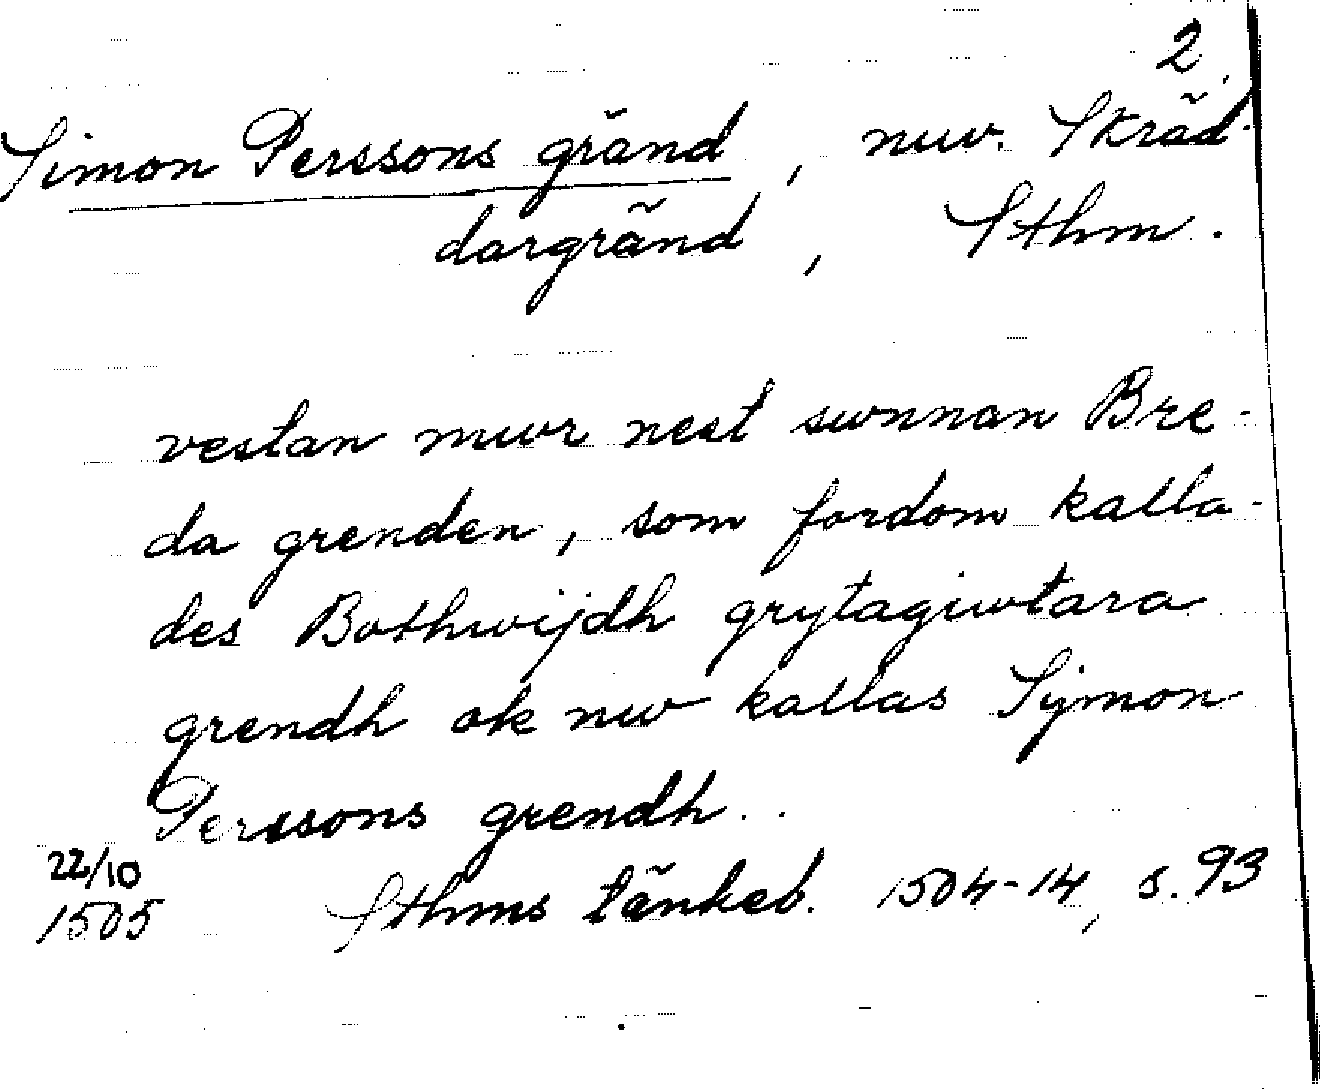 2.
Simon Perssons gränd, nuv. Skräd-
dargränd, Sthm.
vestan mwr nest swnnan Bre-
da grenden, som fordom kalla-
des Bothwijdh grytagiwtara
grendh ok nw kallas Symon
Perssons grendh..
22/10
1505 Sthms tänkeb. 1504-14, s. 93